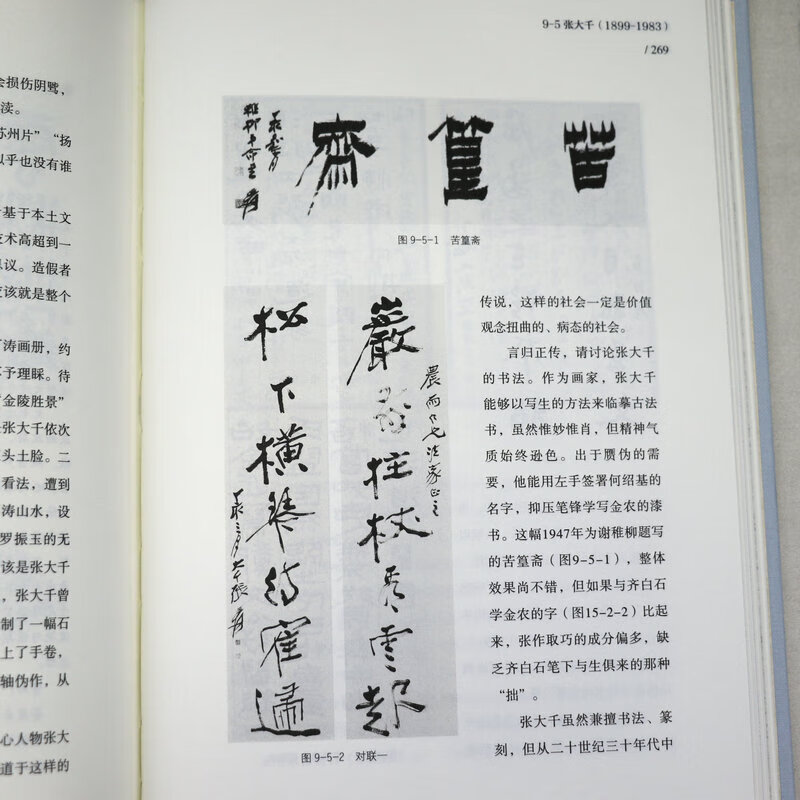 会损伤阴骘，
读。
苏州片”“扬
以乎也没有谁
基于本土文
技术高超到一
思议。造假者
应该就是整个
涛画册，约
不予理睬。待
“金陵胜景”
张大千依次
头土脸。二
看法，遭到
涛山水，设
罗振玉的无
该是张大千
，张大千曾
制了一幅石
上了手卷，
轴伪作，从
心人物张大
道于这样的
9-5 张大千（1899-1983）
/ 269
苦篁齋
图 9-5-1 苦篁斋
巖前拄杖看雲起
松下橫琴待鶴還
图 9-5-2 对联一
传说，这样的社会一定是价值
观念扭曲的、病态的社会。
言归正传，请讨论张大千
的书法。作为画家，张大千
能够以写生的方法来临摹古法
书，虽然惟妙惟肖，但精神气
质始终逊色。出于赝伪的需
要，他能用左手签署何绍基的
名字，抑压笔锋学写金农的漆
书。这幅1947年为谢稚柳题写
的苦篁斋（图9-5-1），整体
效果尚不错，但如果与齐白石
学金农的字（图15-2-2）比起
来，张作取巧的成分偏多，缺
乏齐白石笔下与生俱来的那种
“拙”。
张大千虽然兼擅书法、篆
刻，但从二十世纪三十年代中